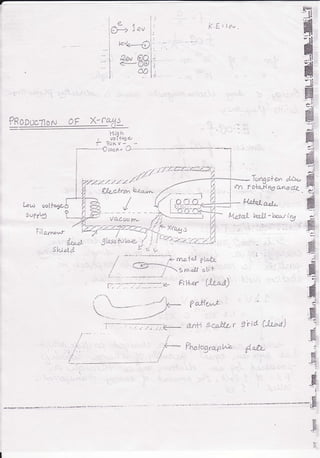 e
10V
K.E
20V
PRODUCTION OF X-rays
High
voltage
+ 30KV -
Tungsten disc
on rotating anode.
Electron beam
Metal axle
Low voltage
supply
vacuum
Metal ball-bearing
Filament
X-rays
lead
shield
glass tube
metal plate
small slit
Filter (lead)
patient
anti scatter grid (lead)
Photographic plate